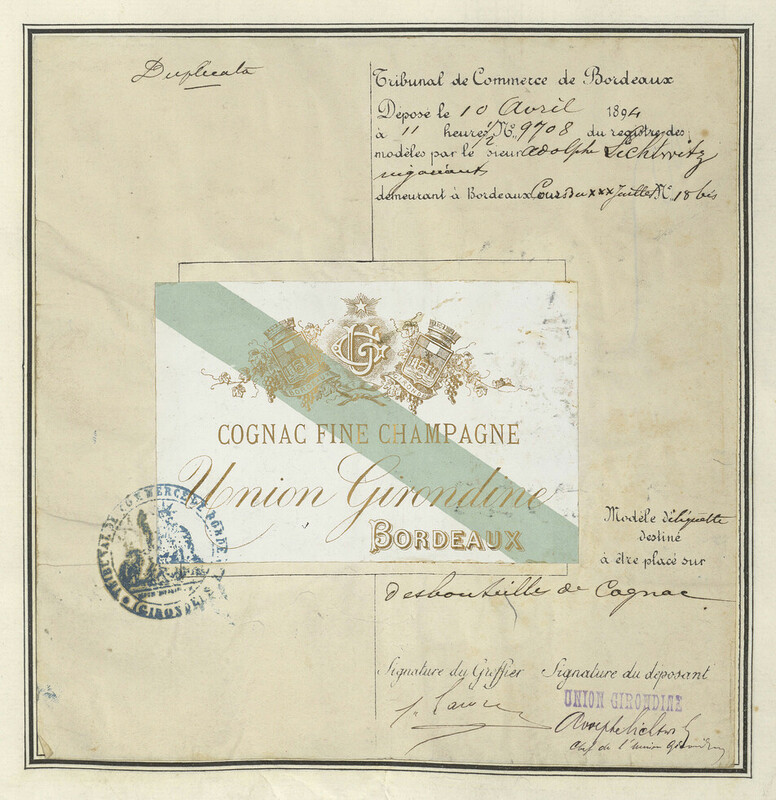 Duplicata
Tribunal de Commerce de Bordeaux
Déposé le 10 Avril 1894
à 11 heures 1/2 N° 9708 du registre des
modèles par le sieur Adolphe Lichtwitz
négociant
demeurant à Bordeaux Cours du xxx Juillet N° 18 bis
COGNAC FINE CHAMPAGNE
Union Girondine
BORDEAUX
TRIBUNAL DE COMMERCE DE BORDEAUX
(GIRONDE)
Modèle d'étiquette
destiné
à être placé sur
des bouteille de Cognac
Signature du Greffier Signature du déposant
UNION GIRONDINE
Adolphe Lichtwitz
Chef de l'Union Girondine